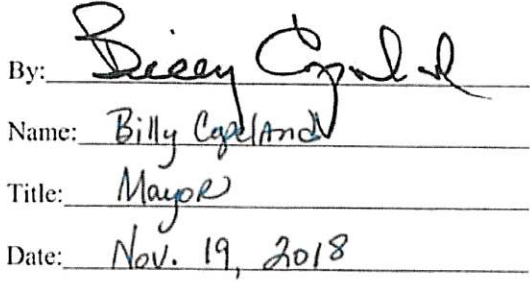 By: Billy Copeland
Name: Billy CopelAnd
Title: MayoR
Date: Nov. 19, 2018